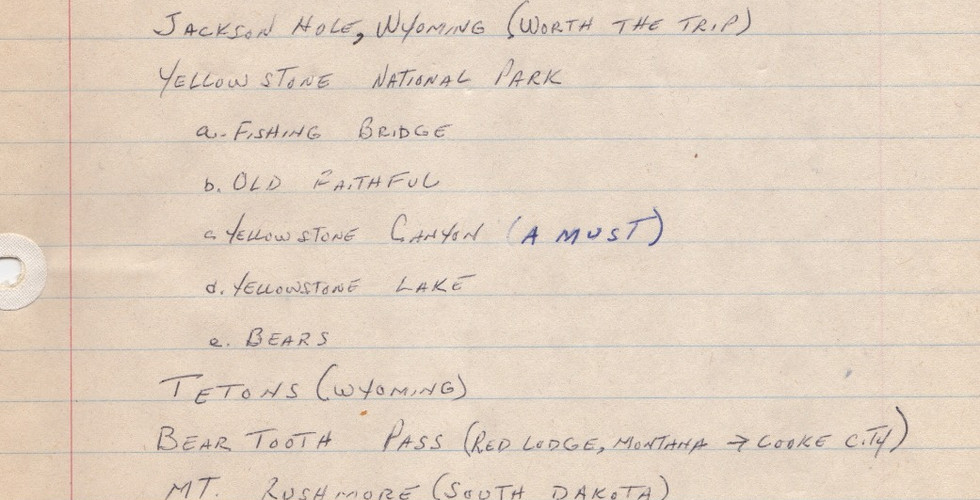 JACKSON HOLE, WYOMING (WORTH THE TRIP)
YELLOWSTONE NATIONAL PARK
a. FISHING BRIDGE
b. OLD FAITHFUL
c. YELLOWSTONE CANYON (A MUST)
d. YELLOWSTONE LAKE
e. BEARS
TETONS (WYOMING)
BEAR TOOTH PASS (RED LODGE, MONTANA → COOKE CITY)
MT. RUSHMORE (SOUTH DAKOTA)